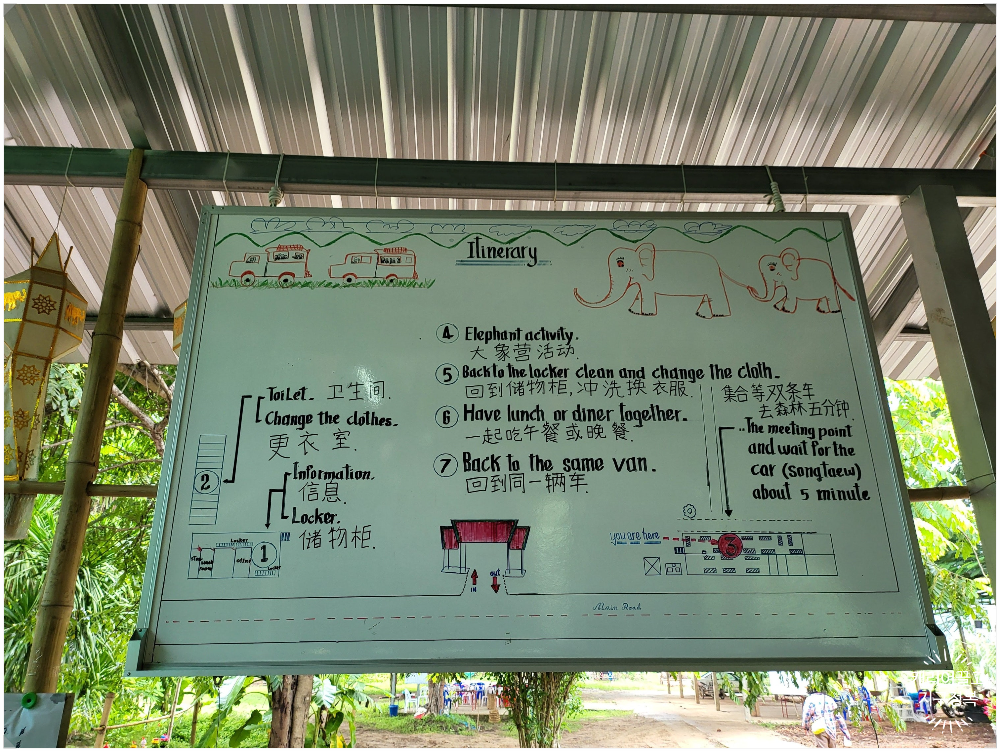 Itinerary
4 Elephant activity.
大象营活动.
5 Back to the locker clean and change the cloth.
回到储物柜,冲洗换衣服.
6 Have lunch or diner together.
一起吃午餐或晚餐.
7 Back to the same van.
回到同一辆车.
Toilet. 卫生间.
Change the clothes.
更衣室.
2
Information.
信息.
Locker.
储物柜.
Locker
1
集合等双条车
去森林五分钟.
..The meeting point
and wait for the
car (songtaew)
about 5 minute
you are here
3
IN
out
Main Road